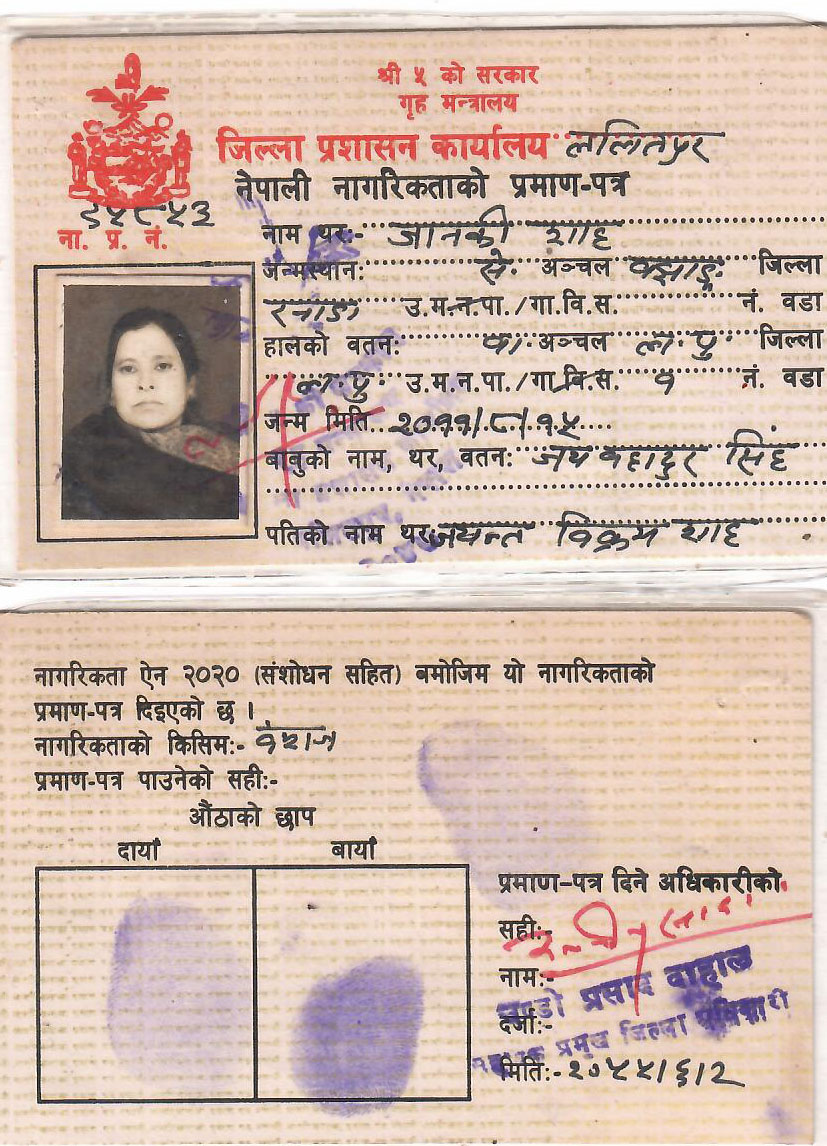 श्री ५ को सरकार
गृह मन्त्रालय
जिल्ला प्रशासन कार्यालय ललितपुर
नेपाली नागरिकताको प्रमाण-पत्र
ना. प्र. नं.
नाम थर:- जानकी शाह
जन्मस्थान: से. अञ्चल बझाङ्ग जिल्ला
उ.म.न.पा./गा.वि.स. नं. वडा
हालको वतन: वा. अञ्चल ल. पु. जिल्ला
ल. पु. उ.म.न.पा./गा.वि.स. १ नं. वडा
जन्म मिति २०११/८/१५
बाबुको नाम, थर, वतन: जय बहादुर सिंह
पतिको नाम थर जयन्त विक्रम शाह
नागरिकता ऐन २०२० (संशोधन सहित) बमोजिम यो नागरिकताको
प्रमाण-पत्र दिइएको छ ।
नागरिकताको किसिम:- वंशज
प्रमाण-पत्र पाउनेको सही:-
औंठाको छाप
दायाँ बायाँ
प्रमाण-पत्र दिने अधिकारीको
सही:-
नाम:- प्रसाद दाहाल
दर्जा:- प्रमुख जिल्ला अधिकारी
मिति:- २०५५/६/२